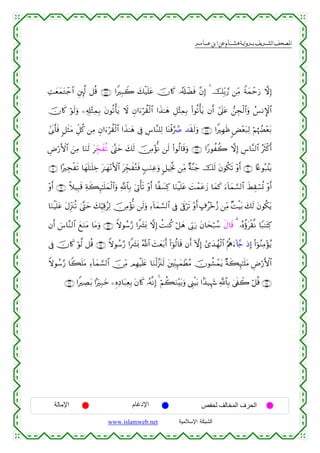 المصحف الشريف برواية هشام عن ابن عامر
إِلَّا رَحْمَةً مِّن رَّبِّكَ ۚ إِنَّ فَضْلَهُۥ كَانَ عَلَيْكَ كَبِيرًا ﴿٨٧﴾ قُل لَّئِنِ ٱجْتَمَعَتِ
ٱلْإِنسُ وَٱلْجِنُّ عَلَىٰٓ أَن يَأْتُوا۟ بِمِثْلِ هَٰذَا ٱلْقُرْءَانِ لَا يَأْتُونَ بِمِثْلِهِۦ وَلَوْ كَانَ
بَعْضُهُمْ لِبَعْضٍ ظَهِيرًا ﴿٨٨﴾ وَلَقَد صَّرَّفْنَا لِلنَّاسِ فِى هَٰذَا ٱلْقُرْءَانِ مِن كُلِّ مَثَلٍ فَأَبَىٰٓ
أَكْثَرُ ٱلنَّاسِ إِلَّا كُفُورًا ﴿٨٩﴾ وَقَالُوا۟ لَن نُّؤْمِنَ لَكَ حَتَّىٰ تُفَجِّرَ لَنَا مِنَ ٱلْأَرْضِ
يَنۢبُوعًا ﴿٩٠﴾ أَوْ تَكُونَ لَكَ جَنَّةٌ مِّن نَّخِيلٍ وَعِنَبٍ فَتُفَجِّرَ ٱلْأَنْهَٰرَ خِلَٰلَهَا تَفْجِيرًا ﴿٩١﴾
أَوْ تُسْقِطَ ٱلسَّمَآءَ كَمَا زَعَمْتَ عَلَيْنَا كِسَفًا أَوْ تَأْتِىَ بِٱللَّهِ وَٱلْمَلَٰٓئِكَةِ قَبِيلًا ﴿٩٢﴾ أَوْ
يَكُونَ لَكَ بَيْتٌ مِّن زُخْرُفٍ أَوْ تَرْقَىٰ فِى ٱلسَّمَآءِ وَلَن نُّؤْمِنَ لِرُقِيِّكَ حَتَّىٰ تُنَزِّلَ عَلَيْنَا
كِتَٰبًا نَّقْرَؤُهُۥ ۗ قَالَ سُبْحَانَ رَبِّى هَلْ كُنتُ إِلَّا بَشَرًا رَّسُولًا ﴿٩٣﴾ وَمَا مَنَعَ ٱلنَّاسَ أَن
يُؤْمِنُوٓا۟ إِذ جَّآءَهُمُ ٱلْهُدَىٰٓ إِلَّآ أَن قَالُوٓا۟ أَبَعَثَ ٱللَّهُ بَشَرًا رَّسُولًا ﴿٩٤﴾ قُل لَّوْ كَانَ فِى
ٱلْأَرْضِ مَلَٰٓئِكَةٌ يَمْشُونَ مُطْمَئِنِّينَ لَنَزَّلْنَا عَلَيْهِم مِّنَ ٱلسَّمَآءِ مَلَكًا رَّسُولًا
﴿٩٥﴾ قُلْ كَفَىٰ بِٱللَّهِ شَهِيدًۢا بَيْنِى وَبَيْنَكُمْ ۚ إِنَّهُۥ كَانَ بِعِبَادِهِۦ خَبِيرًۢا بَصِيرًا ﴿٩٦﴾
الحرف المخالف لحفص الإدغام الإمالة
الشبكة الإسلامية www.islamweb.net